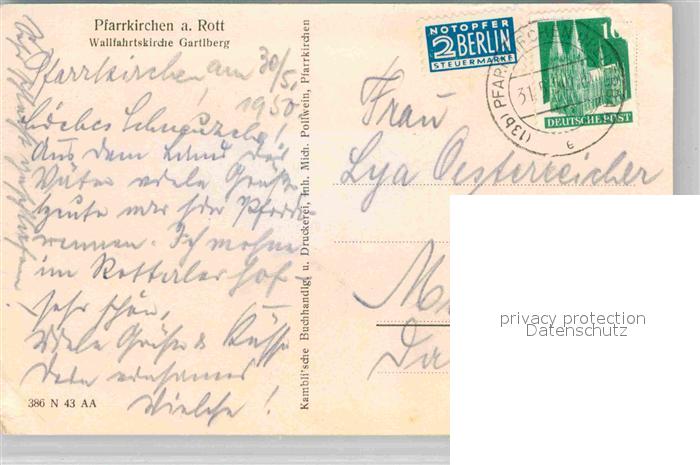 Pfarrkirchen a. Rott
Wallfahrtskirche Gartlberg
Pfarrkirchen, am 30/5.
1950
Liebes Schnuzele!
Aus dem Land der
Väter viele Grüße
heute war hier Pferde
rennen. Ich wohne
im Rottaler Hof
sehr schön,
Viele Grüße & Küsse
Dein einsames
386 N 43 AA
Kambli'sche Buchhandlg. u. Druckerei, Inh. Mich. Pollwein, Pfarrkirchen
NOTOPFER
2 BERLIN
STEUERMARKE
DEUTSCHE POST
(13b) PFARRKIRCHEN
31.5
e
Frau
Lya Oestereicher
M
Da
privacy protection
Datenschutz